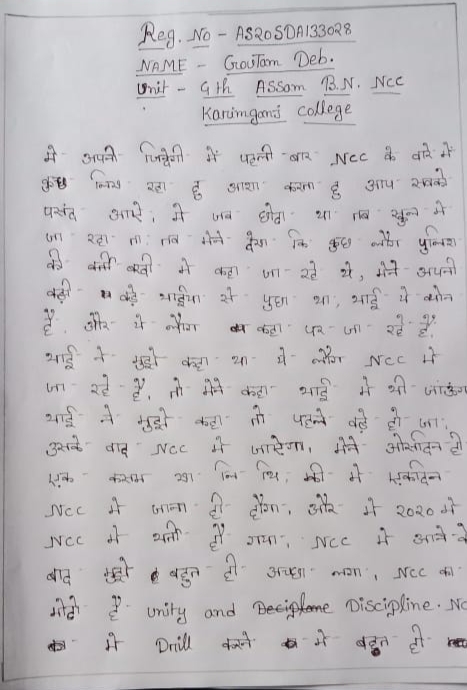 Reg. No - AS20SDA133028
NAME - Goutam Deb.
Unit - 9th Assam B.N. NCC
Karimganj College
मे अपनी जिंदेगी में पहली बार NCC के बारे में
कुछ लिख रहा हु आशा करता हु आप सबको
पसंद आऐ, मे जब छोटा था तब स्कुल मे
जा रहा ता, तब मेने देखा कि कुछ लौग पुलिश
की बर्ती में कहा जा रहे थे, मेने अपनी
बडे भाईया से पुछा था, भाई ये कोन
हैं, और ये लौग कहा पर जा रहे हैं,
भाई ने मुझे कहा था ये लौग NCC मे
जा रहे हैं, तो मेने कहा भाई मे भी जाऊंगा
भाई ने मुझे कहा तो पहले बडे हो जा,
उसके बाद NCC मे जाऐगा, मेने ओसदिन ही
एक कसम खा लि थि, की मे एकदिन
NCC मे जाना ही हौगा, और मे 2020 मे
NCC मे भर्ती हौ गया, NCC मे आने के
बाद मुझे बहुत ही अच्छा लगा, NCC का
मोटो है unity and Discipline. NC
मे Drill करने मे बहुत ही